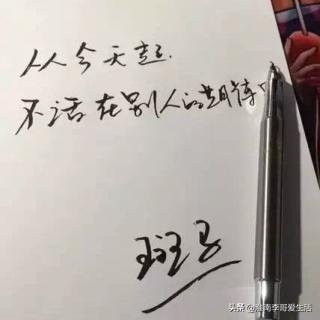 从今天起
不活在别人的期待中
班马
头条 @淮南李哥爱生活